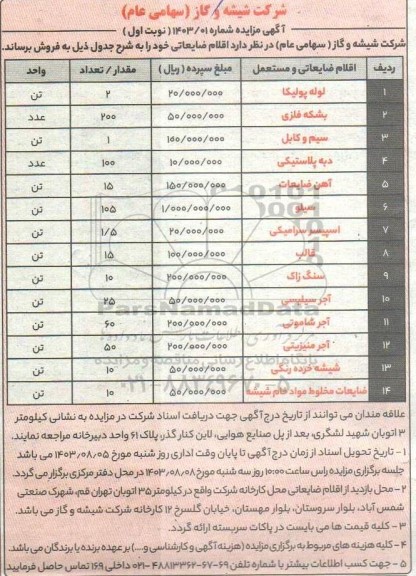 شرکت شیشه و گاز (سهامی عام)
آگهی مزایده شماره ۱۴۰۳/۰۱ ( نوبت اول )
شرکت شیشه و گاز ( سهامی عام) در نظر دارد اقلام ضایعاتی خود را به شرح جدول ذیل به فروش برساند.
ردیف اقلام ضایعاتی و مستعمل مبلغ سپرده ( ریال ) مقدار / تعداد واحد
۱ لوله پولیکا ۲۰/۰۰۰/۰۰۰ ۲ تن
۲ بشکه فلزی ۵۰/۰۰۰/۰۰۰ ۲۰۰ عدد
۳ سیم و کابل ۱۵۰/۰۰۰/۰۰۰ ۱ تن
۴ دبه پلاستیکی ۱۰/۰۰۰/۰۰۰ ۱۰۰ عدد
۵ آهن ضایعات ۱۵۰/۰۰۰/۰۰۰ ۱۵ تن
۶ سیلو ۱/۰۰۰/۰۰۰/۰۰۰ ۱۰۵ تن
۷ اسپیسر سرامیکی ۲۰/۰۰۰/۰۰۰ ۱/۵ تن
۸ قالب ۱۰۰/۰۰۰/۰۰۰ ۱۵ تن
۹ سنگ زاک ۲۰۰/۰۰۰/۰۰۰ ۱۰ تن
۱۰ آجر سیلیسی ۵۰/۰۰۰/۰۰۰ ۲۵ تن
۱۱ آجر شاموتی ۲۰۰/۰۰۰/۰۰۰ ۶۰ تن
۱۲ آجر منیزیتی ۲۰۰/۰۰۰/۰۰۰ ۵۰ تن
۱۳ شیشه خرده رنگی ۵۰/۰۰۰/۰۰۰ ۱۰ تن
۱۴ ضایعات مخلوط مواد خام شیشه ۵۰/۰۰۰/۰۰۰ ۱۰ تن
ParsNamadData
پایگاه اطلاع رسانی مناقصه و مزایده
۰۲۱-۸۸۳۴۹۶۷۰-۵
علاقه مندان می توانند از تاریخ درج آگهی جهت دریافت اسناد شرکت در مزایده به نشانی کیلومتر
۳ اتوبان شهید لشگری، بعد از پل صنایع هوایی، لاین کنار گذر، پلاک ۶۱ واحد دبیرخانه مراجعه نمایند.
۱- تاریخ تحویل اسناد از زمان درج آگهی تا پایان وقت اداری روز شنبه مورخ ۱۴۰۳/۰۸/۰۵ می باشد
جلسه برگزاری مزایده راس ساعت ۱۰:۰۰ روز سه شنبه مورخ ۱۴۰۳/۰۸/۰۸ در محل دفتر مرکزی برگزار می گردد.
۲- محل بازدید از اقلام ضایعاتی محل کارخانه شرکت واقع در کیلومتر ۳۵ اتوبان تهران قم، شهرک صنعتی
شمس آباد، بلوار سروستان، بلوار مهستان، خیابان گلسرخ ۱۲ کارخانه شرکت شیشه و گاز می باشد.
۳- کلیه قیمت ها می بایست در پاکات سربسته ارائه گردد.
۴- کلیه هزینه های مربوط به برگزاری مزایده (هزینه آگهی و کارشناسی و...) بر عهده برنده یا برندگان می باشد.
۵- جهت کسب اطلاعات بیشتر با شماره تلفن ۶۹-۶۷-۴۸۸۱۳۳۶۲-۰۲۱ داخلی ۱۶۹ تماس حاصل فرمایید